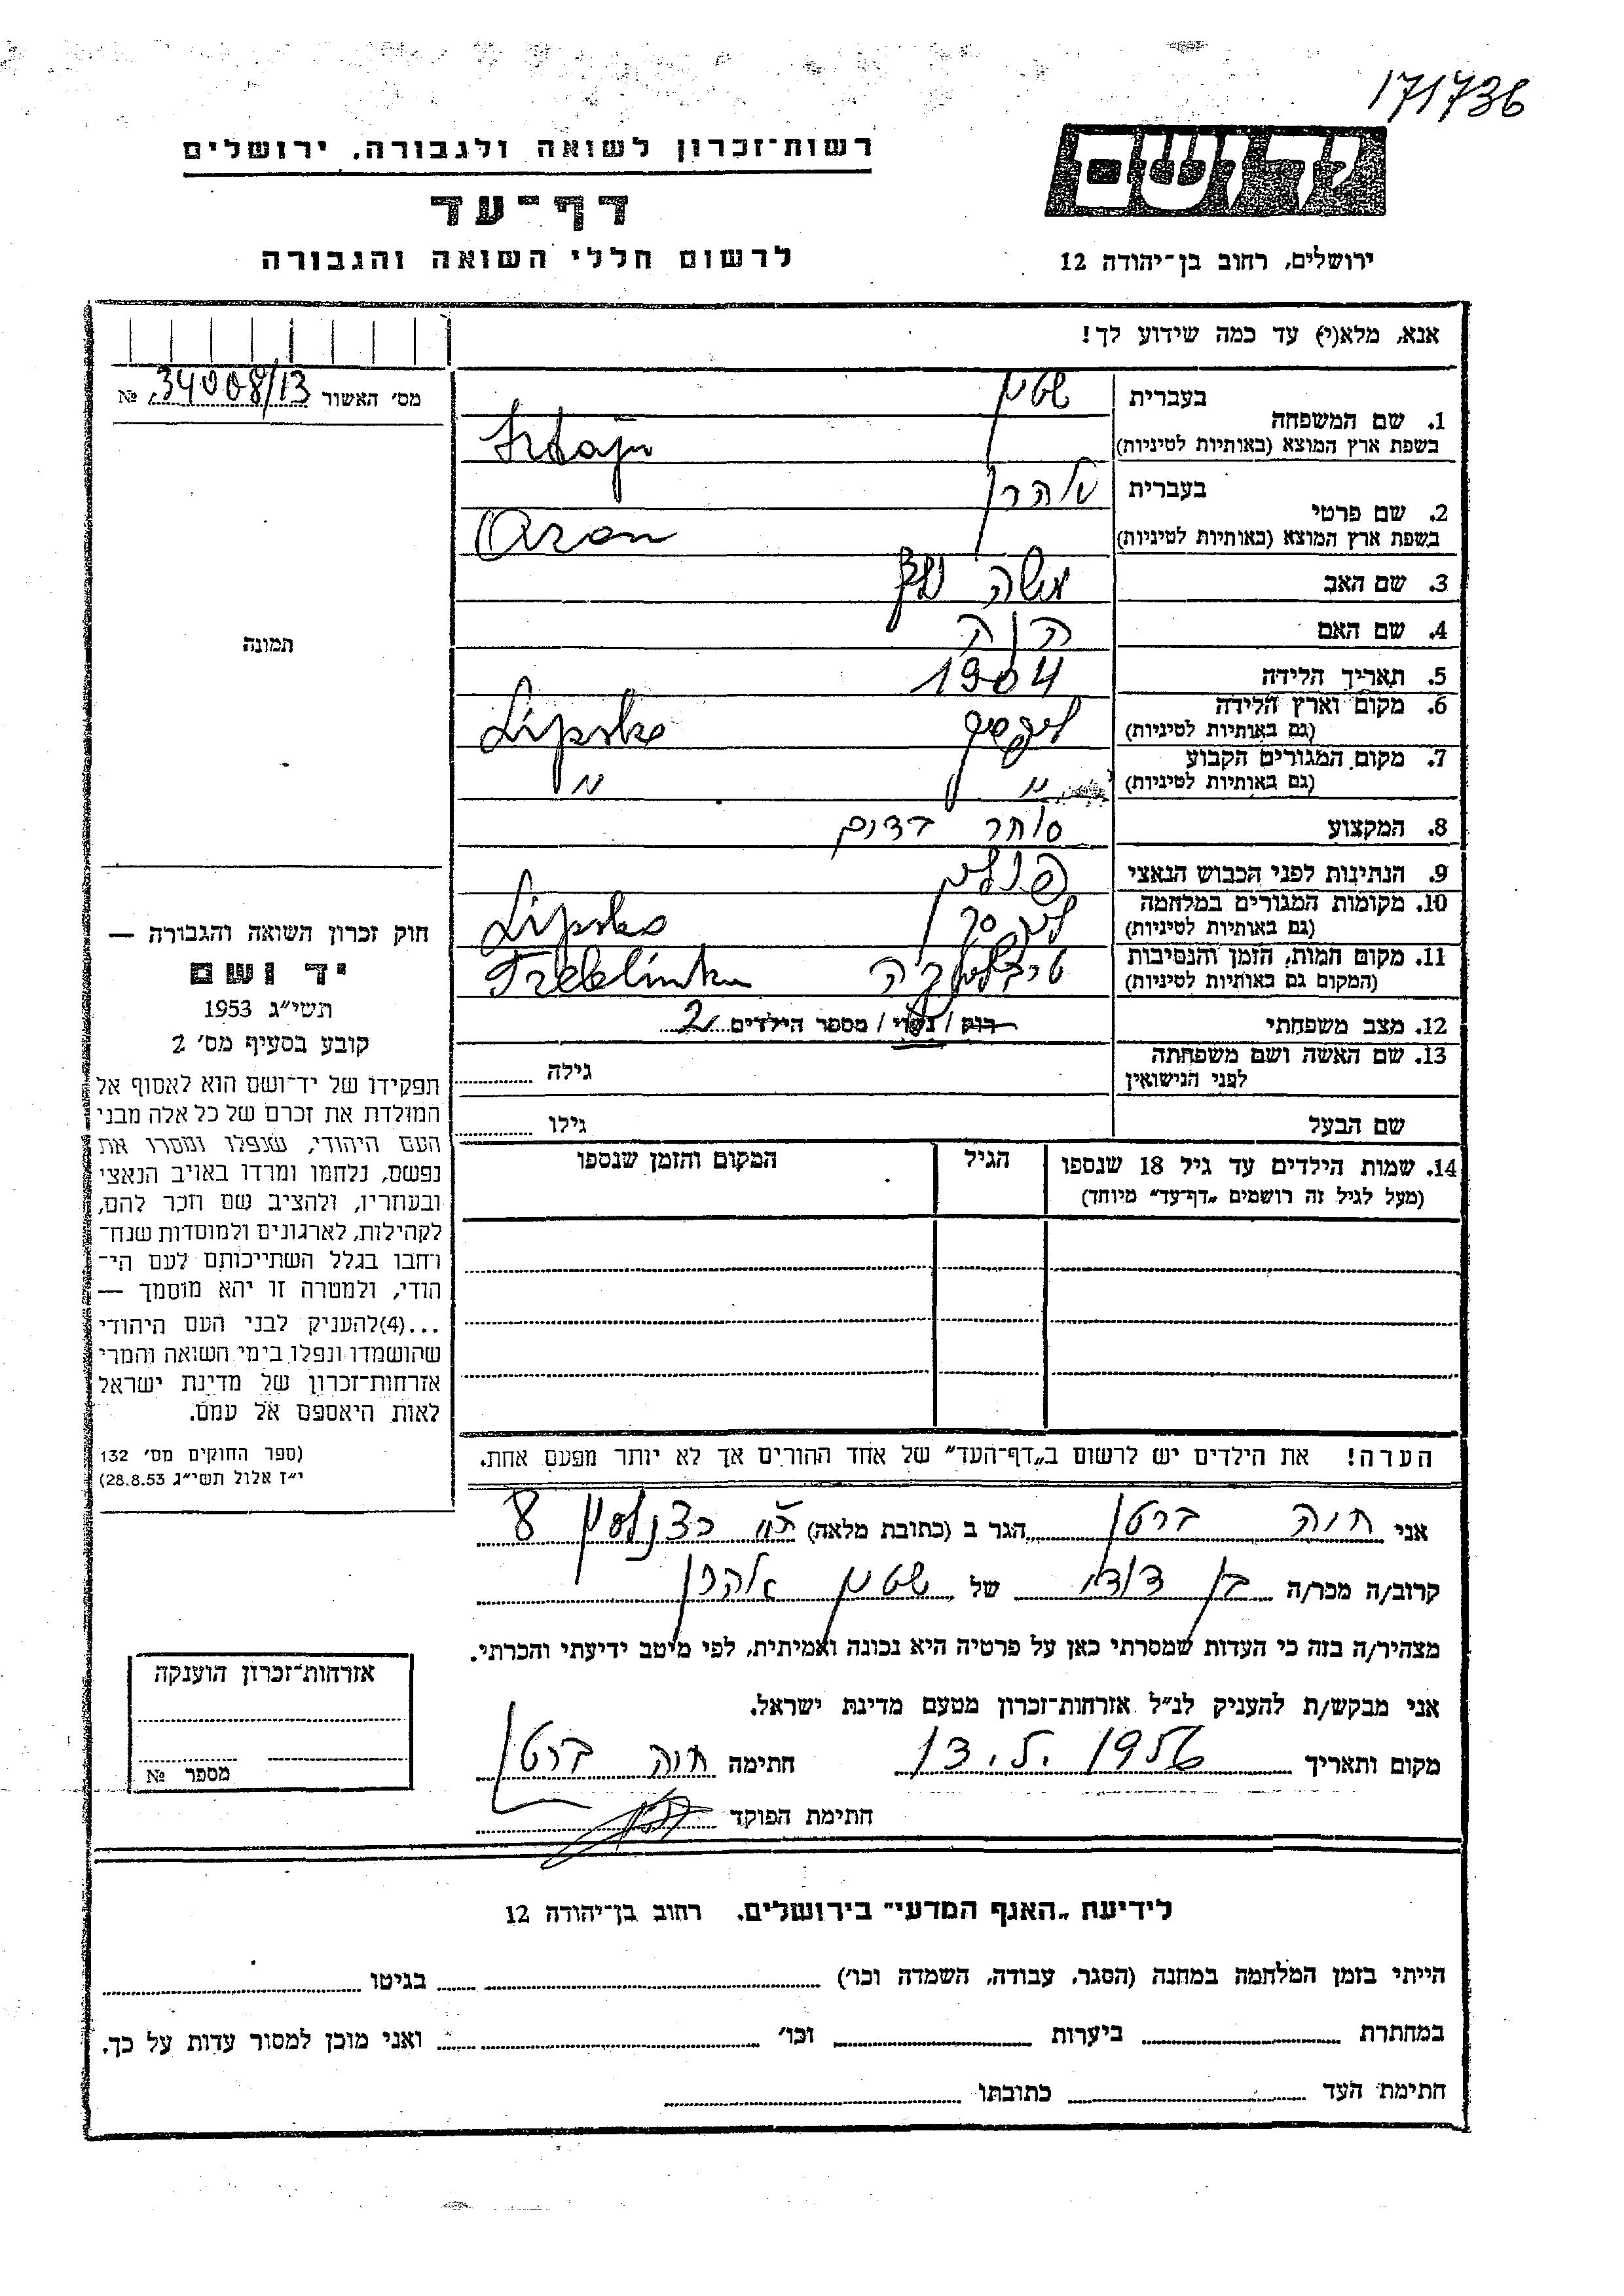 171736
יד ושם
רשות־זכרון לשואה ולגבורה, ירושלים
דף־עד
ירושלים, רחוב בן־יהודה 12
לרשום חללי השואה והגבורה
אנא, מלא(י) עד כמה שידוע לך!
מס' האשור № 34008/13
1. שם המשפחה
בעברית שטיין
בשפת ארץ המוצא (באותיות לטיניות) Sztajn
2. שם פרטי
בעברית אהרן
בשפת ארץ המוצא (באותיות לטיניות) Aron
3. שם האב משה
4. שם האם חוה
5. תאריך הלידה 1904
6. מקום וארץ הלידה
(גם באותיות לטיניות) Lipsko
7. מקום המגורים הקבוע
(גם באותיות לטיניות) " "
8. המקצוע סוחר בדים
9. הנתינות לפני הכבוש הנאצי פולין
10. מקומות המגורים במלחמה
(גם באותיות לטיניות) Lipsko
11. מקום המות, הזמן והנסיבות
(המקום גם באותיות לטיניות) טרבלינקה Treblinka
12. מצב משפחתי רווק / נשוי / מספר הילדים 2
13. שם האשה ושם משפחתה גילה
לפני הנישואין
שם הבעל גילו
14. שמות הילדים עד גיל 18 שנספו הגיל המקום והזמן שנספו
(מעל לגיל זה רושמים „דף־עד" מיוחד)
הערה! את הילדים יש לרשום ב„דף־העד" של אחד ההורים אך לא יותר מפעם אחת.
תמונה
חוק זכרון השואה והגבורה —
יד ושם
תשי"ג 1953
קובע בסעיף מס' 2
תפקידו של יד־ושם הוא לאסוף אל
המולדת את זכרם של כל אלה מבני
העם היהודי, שנפלו ומסרו את
נפשם, נלחמו ומרדו באויב הנאצי
ובעוזריו, ולהציב שם וזכר להם,
לקהילות, לארגונים ולמוסדות שנח־
רבו בגלל השתייכותם לעם הי־
הודי, ולמטרה זו יהא מוסמך —
...(4)להעניק לבני העם היהודי
שהושמדו ונפלו בימי השואה והמרי
אזרחות־זכרון של מדינת ישראל
לאות היאספם אל עמם.
(ספר החוקים מס' 132
י"ז אלול תשי"ג 28.8.53)
אני חוה ברטן הגר ב (כתובת מלאה) ת"א כצנלסון 8
קרוב/ה מכר/ה בן דודי של שטיין אהרן
מצהיר/ה בזה כי העדות שמסרתי כאן על פרטיה היא נכונה ואמיתית, לפי מיטב ידיעתי והכרתי.
אני מבקש/ת להעניק לנ"ל אזרחות־זכרון מטעם מדינת ישראל.
מקום ותאריך 1956 חתימה חוה ברטן
חתימת הפוקד
אזרחות־זכרון הוענקה
מספר №
לידיעת „האגף המדעי" בירושלים, רחוב בן־יהודה 12
הייתי בזמן המלחמה במחנה (הסגר, עבודה, השמדה וכו') בגיטו
במחתרת ביערות וכו' ואני מוכן למסור עדות על כך.
חתימת העד כתובתו